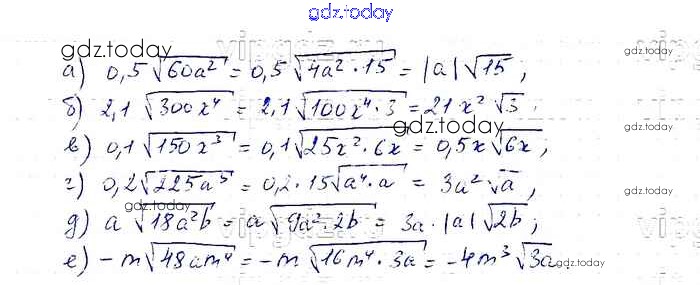 gdz.today
gdz.today
gdz.today
а) 0,5√60a² = 0,5√4a²·15 = |a|√15;
б) 2,1√300x⁴ = 2,1√100x⁴·3 = 21x²√3.
gdz.today
в) 0,1√150x³ = 0,1√25x²·6x = 0,5x√6x;
г) 0,2√225a⁵ = 0,2·15√a⁴·a = 3a²√a;
gdz.today
gdz.today
д) a√18a²b = a√9a²·2b = 3a·|a|√2b;
е) -m√48am⁴ = -m√16m⁴·3a = -4m³√3a.
gdz.today